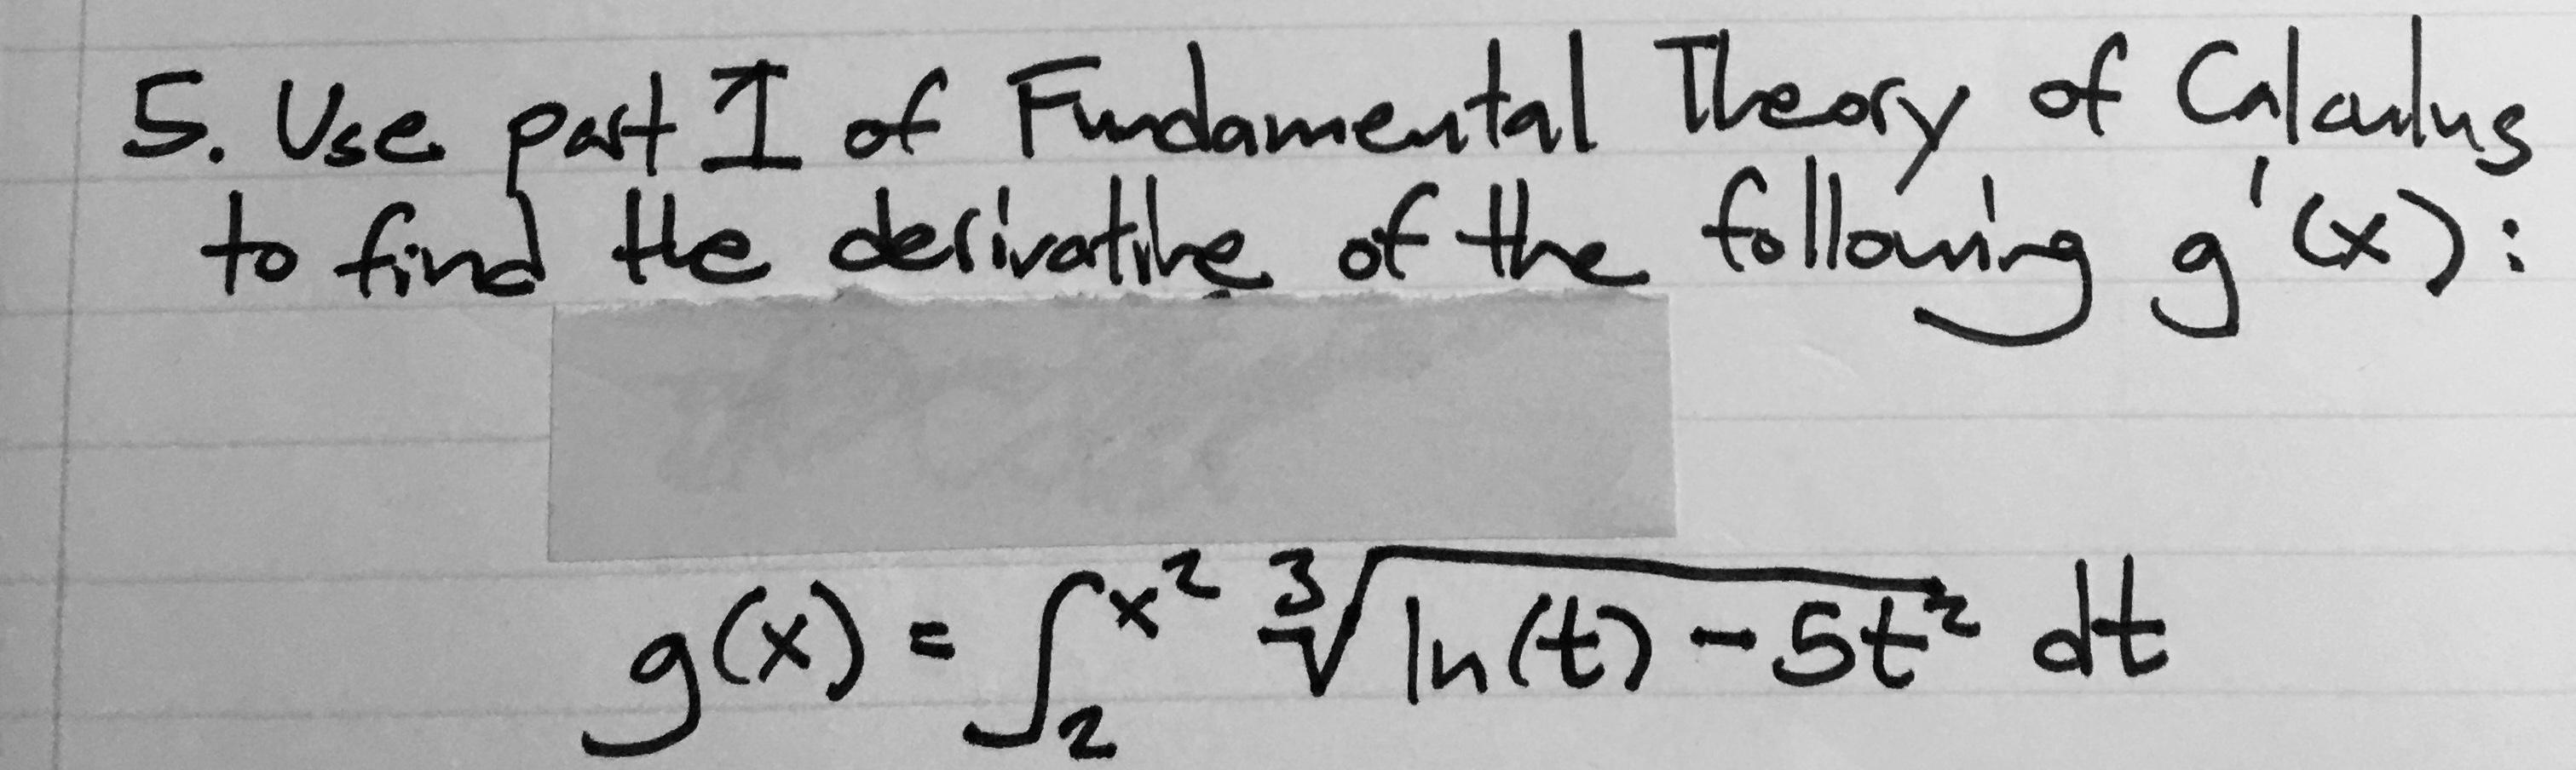 5. Use part I of Fundamental Theory of Calculus
to find the derivative of the following g'(x):
g(x) = ∫₂^x² ∛(ln(t) - 5t²) dt